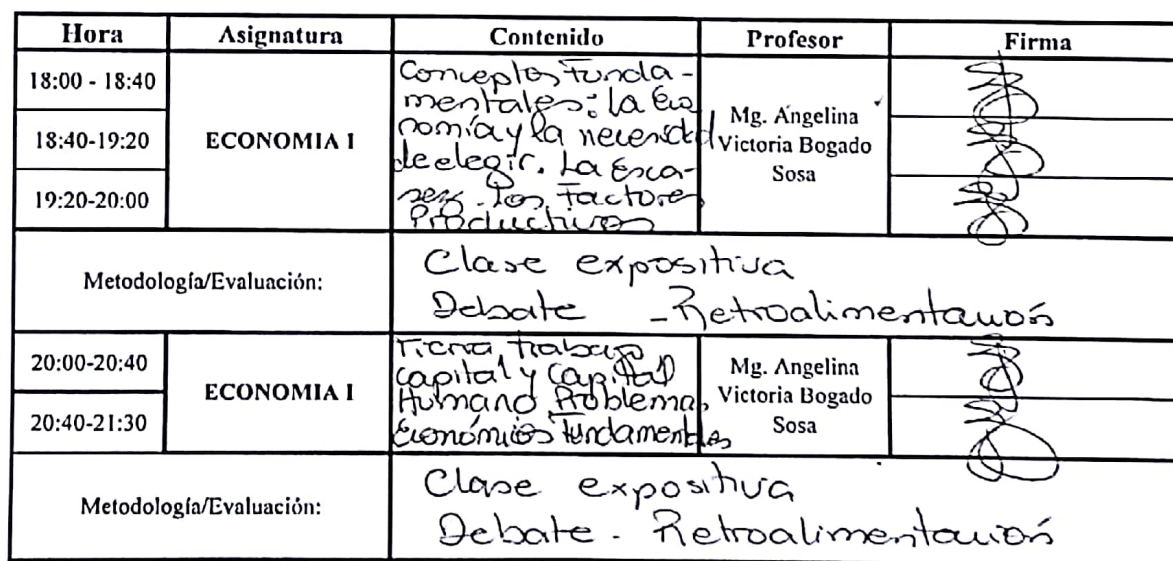 Hora Asignatura Contenido Profesor Firma
18:00 - 18:40
18:40-19:20
19:20-20:00
ECONOMIA I
Conceptos Funda-
mentales: La Eco
nomía y la necesidad
de elegir. La Esca-
sez. Los Factores
Productivos
Mg. Angelina
Victoria Bogado
Sosa
Metodología/Evaluación:
Clase expositiva
Debate - Retroalimentación
20:00-20:40
20:40-21:30
ECONOMIA I
Tierra, trabajo
capital y Capital
Humano Problemas
Económicos Fundamentales
Mg. Angelina
Victoria Bogado
Sosa
Metodología/Evaluación:
Clase expositiva
Debate - Retroalimentación